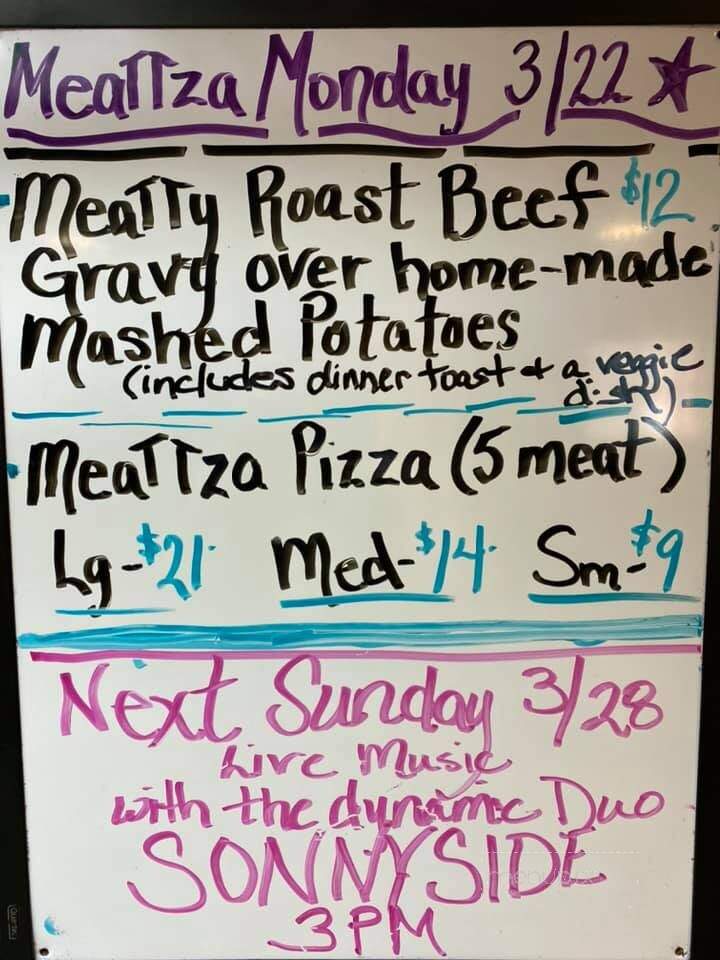 MeaTTza Monday 3/22
MeaTTy Roast Beef $12
Gravy over home-made
Mashed Potatoes
(includes dinner toast & a veggie
dish)
MeaTTza Pizza (5 meat)
Lg-$21 Med-$14 Sm-$9
Next Sunday 3/28
Live Music
with the dynamic Duo
SONNYSIDE
3PM